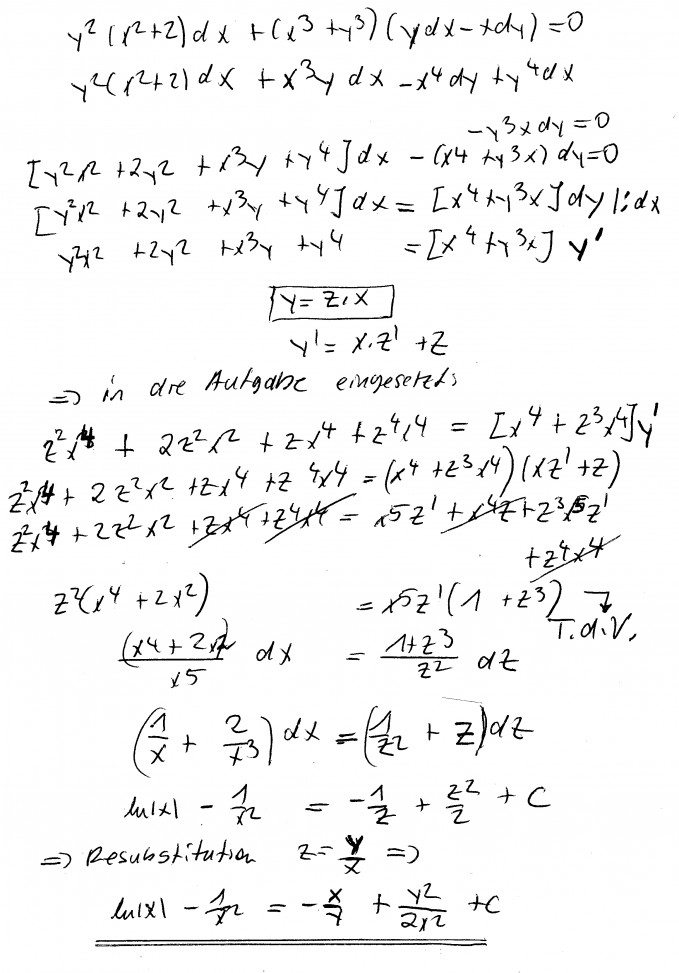 y²(x²+2)dx + (x³+y³)(ydx-xdy)=0
y²(x²+2)dx + x³y dx - x⁴dy + y⁴dx
-y³xdy=0
[y²x² +2y² +x³y +y⁴]dx - (x4 +y³x) dy=0
[y²x² +2y² +x³y +y⁴]dx = [x⁴+y³x]dy |:dx
y²x² +2y² +x³y +y⁴ = [x⁴+y³x] y'
y = z·x
y' = x·z' + z
=> in die Aufgabe eingesetzt:
z²x⁴ + 2z²x² + zx⁴ + z⁴x⁴ = [x⁴ + z³x⁴]y'
z²x⁴ + 2z²x² + zx⁴ + z⁴x⁴ = (x⁴ + z³x⁴)(xz' + z)
z²x⁴ + 2z²x² + zx⁴ + z⁴x⁴ = x⁵z' + x⁴z + z³x⁵z'
+z⁴x⁴
z²(x⁴ + 2x²) = x⁵z'(1 + z³)
T.d.V.
(x4 + 2x²)/x5 dx = (1+z³)/z² dz
(1/x + 2/x³)dx = (1/z² + z)dz
ln|x| - 1/x² = -1/z + z²/2 + C
=> Resubstitution z = y/x =>
ln|x| - 1/x² = -x/y + y²/2x² + C